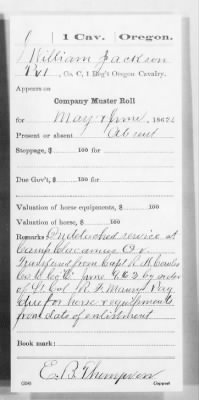 J | 1 Cav. | Oregon.
William Jackson
Pvt, Co. C, 1 Reg't Oregon Cavalry.
Appears on
Company Muster Roll
for May & June, 1862.
Present or absent Absent
Stoppage, $ 100 for
Due Gov't, $ 100 for
Valuation of horse equipments, $ 100
Valuation of horse, $ 100
Remarks: On detached service at
Camp Clackamas O
Transferred from Capt
Co. June by order
of Lt Col R. F. Maury Pay
due for horse & equipments
from date of enlistment
Book mark:
E. B. Thompson
Copyist.